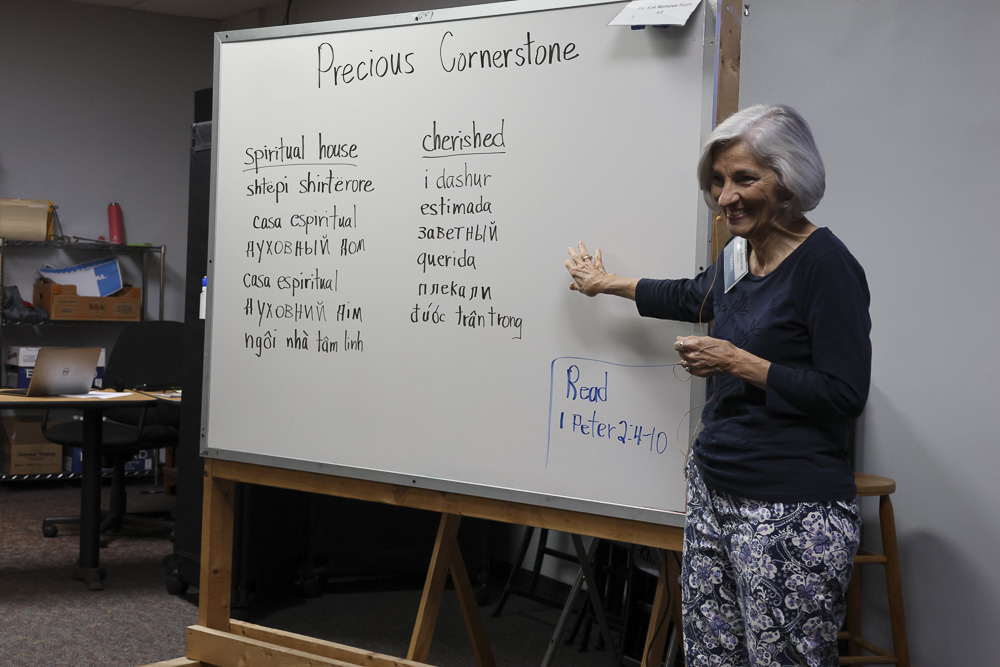 Precious Cornerstone
spiritual house
shtëpi shirtërore
casa espiritual
ДУХОВНЫЙ ДОМ
casa espiritual
ДУХОВНИЙ ДІМ
ngôi nhà tâm linh
cherished
i dashur
estimada
ЗАВЕТНЫЙ
querida
плекали
được trân trọng
Read
1 Peter 2:4-10